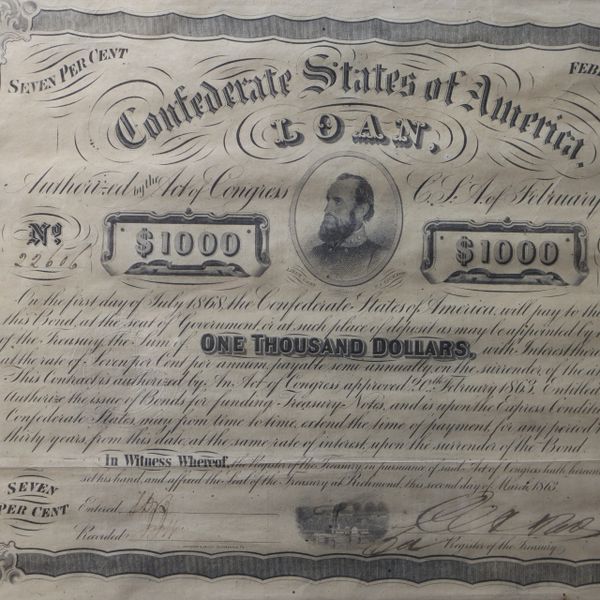 SEVEN PER CENT
FEB
Confederate States of America.
LOAN,
Authorized by the Act of Congress C.S.A. of February
No.
22606
$1000
$1000
On the first day of July 1868, the Confederate States of America, will pay to the
this Bond, at the seat of Government or at such place of deposit as may be appointed by
of the Treasury the Sum of ONE THOUSAND DOLLARS, with Interest there
at the rate of Seven per Cent per annum, payable semi annually, on the surrender of the
This Contract is authorized by An Act of Congress approved 20th February 1863. Entitled
Authorize the issue of Bonds for funding Treasury Notes, and is upon the Express Condit
Confederate States, may from time to time, extend the time of payment, for any period
thirty years from this date, at the same rate of interest, upon the surrender of the Bond.
In Witness Whereof, the Register of the Treasury, in pursuance of said Act of Congress hath hereun
set his hand, and affixed the Seal of the Treasury at Richmond, this second day of March 1863
SEVEN
PER CENT
Entered
Recorded
Register of the Treasury